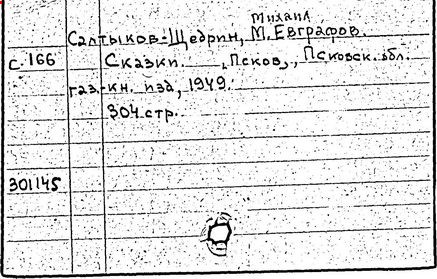 Михаил
Салтыков-Щедрин, М. Евграфов.
с. 166 Сказки. , Псков, Псковск. обл.
газ.-кн. изд, 1949.
304 стр.
301145